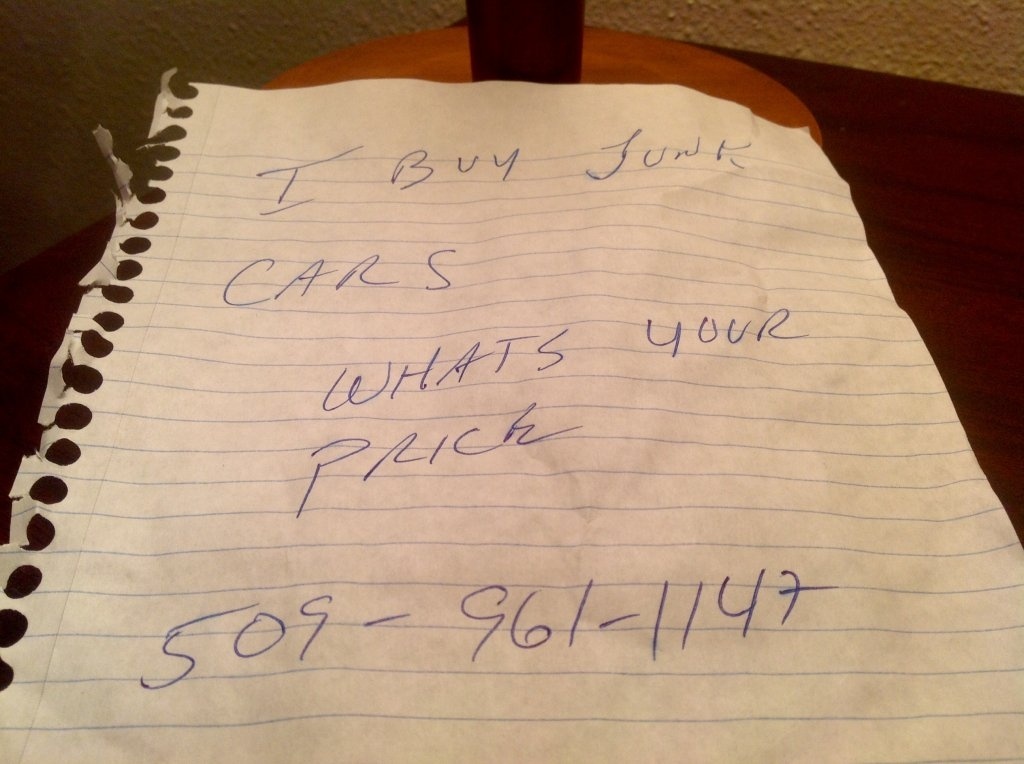 I BUY JUNK
CARS
WHATS YOUR
PRICE
509-961-1147